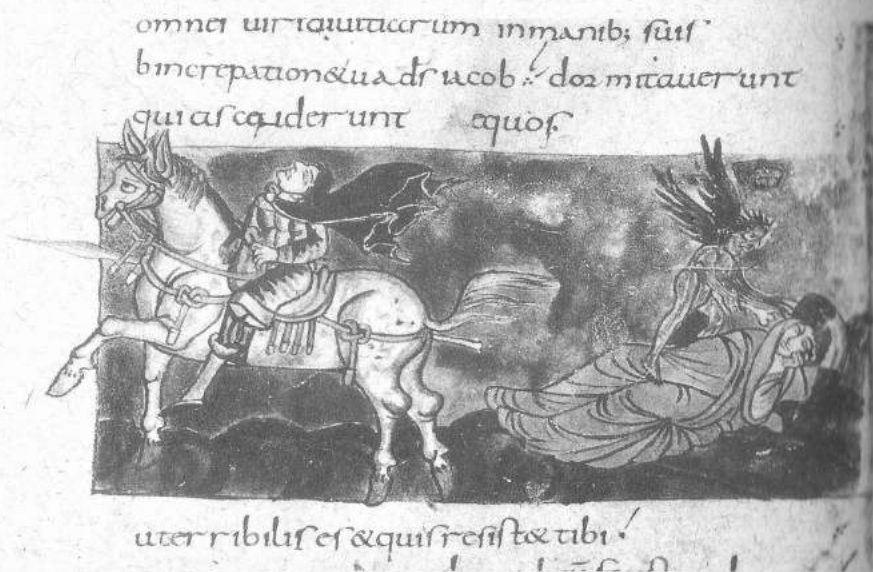 omnes uiri diuitiarum in manib; suis
b increpation&ua d̄s iacob : dormitauerunt
qui ascenderunt equos.
u terribilis es & quis resist& tibi :